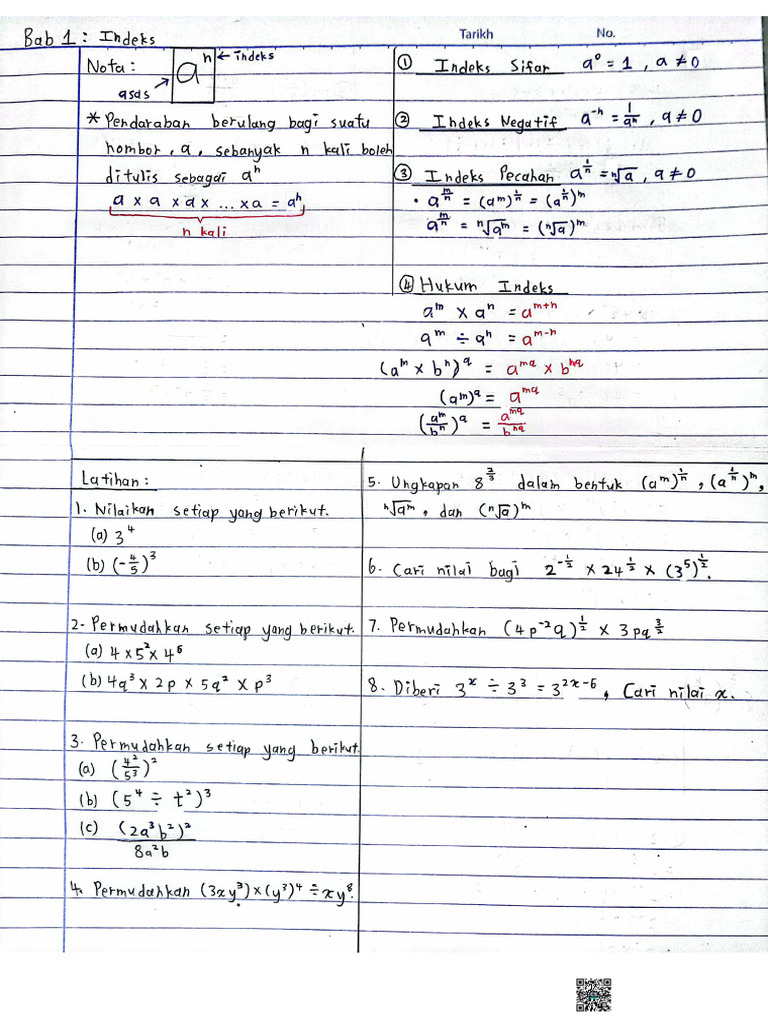 Bab 1 : Indeks
Tarikh
No.
Nota :
aⁿ
← indeks
asas
* Pendaraban berulang bagi suatu
nombor, a, sebanyak n kali boleh
ditulis sebagai aⁿ
a × a × a × ... × a = aⁿ
n kali
① Indeks Sifar a⁰ = 1 , a ≠ 0
② Indeks Negatif a⁻ⁿ = 1/aⁿ , a ≠ 0
③ Indeks Pecahan a^(1/n) = ⁿ√a , a ≠ 0
• a^(m/n) = (a^m)^(1/n) = (a^(1/n))^m
a^(m/n) = ⁿ√(a^m) = (ⁿ√a)^m
④ Hukum Indeks
a^m × a^n = a^(m+n)
a^m ÷ a^n = a^(m-n)
(a^m × b^n)^q = a^(mq) × b^(nq)
(a^m)^q = a^(mq)
(a^m/b^n)^q = a^(mq)/b^(nq)
Latihan :
1. Nilaikan setiap yang berikut.
(a) 3⁴
(b) (-4/5)³
2. Permudahkan setiap yang berikut.
(a) 4 × 5² × 4⁶
(b) 4q³ × 2p × 5q² × p³
3. Permudahkan setiap yang berikut.
(a) (4²/5³)²
(b) (5⁴ ÷ t²)³
(c) (2a³b²)²/8a²b
4. Permudahkan (3xy³) × (y³)⁴ ÷ xy⁸.
5. Ungkapan 8^(2/3) dalam bentuk (a^m)^(1/n) , (a^(1/n))^m,
ⁿ√a^m, dan (ⁿ√a)^m
6. Cari nilai bagi 2^(-1/2) × 24^(1/2) × (3⁵)^(1/2).
7. Permudahkan (4p⁻²q)^(1/2) × 3pq^(3/2)
8. Diberi 3^x ÷ 3³ = 3^(2x-6) , Cari nilai x.